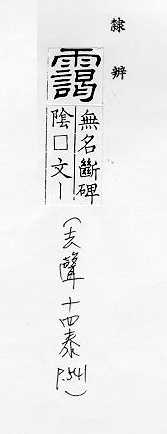 隸辨
靄
無名斷碑
陰□文丨
(去聲十四泰
P.541)